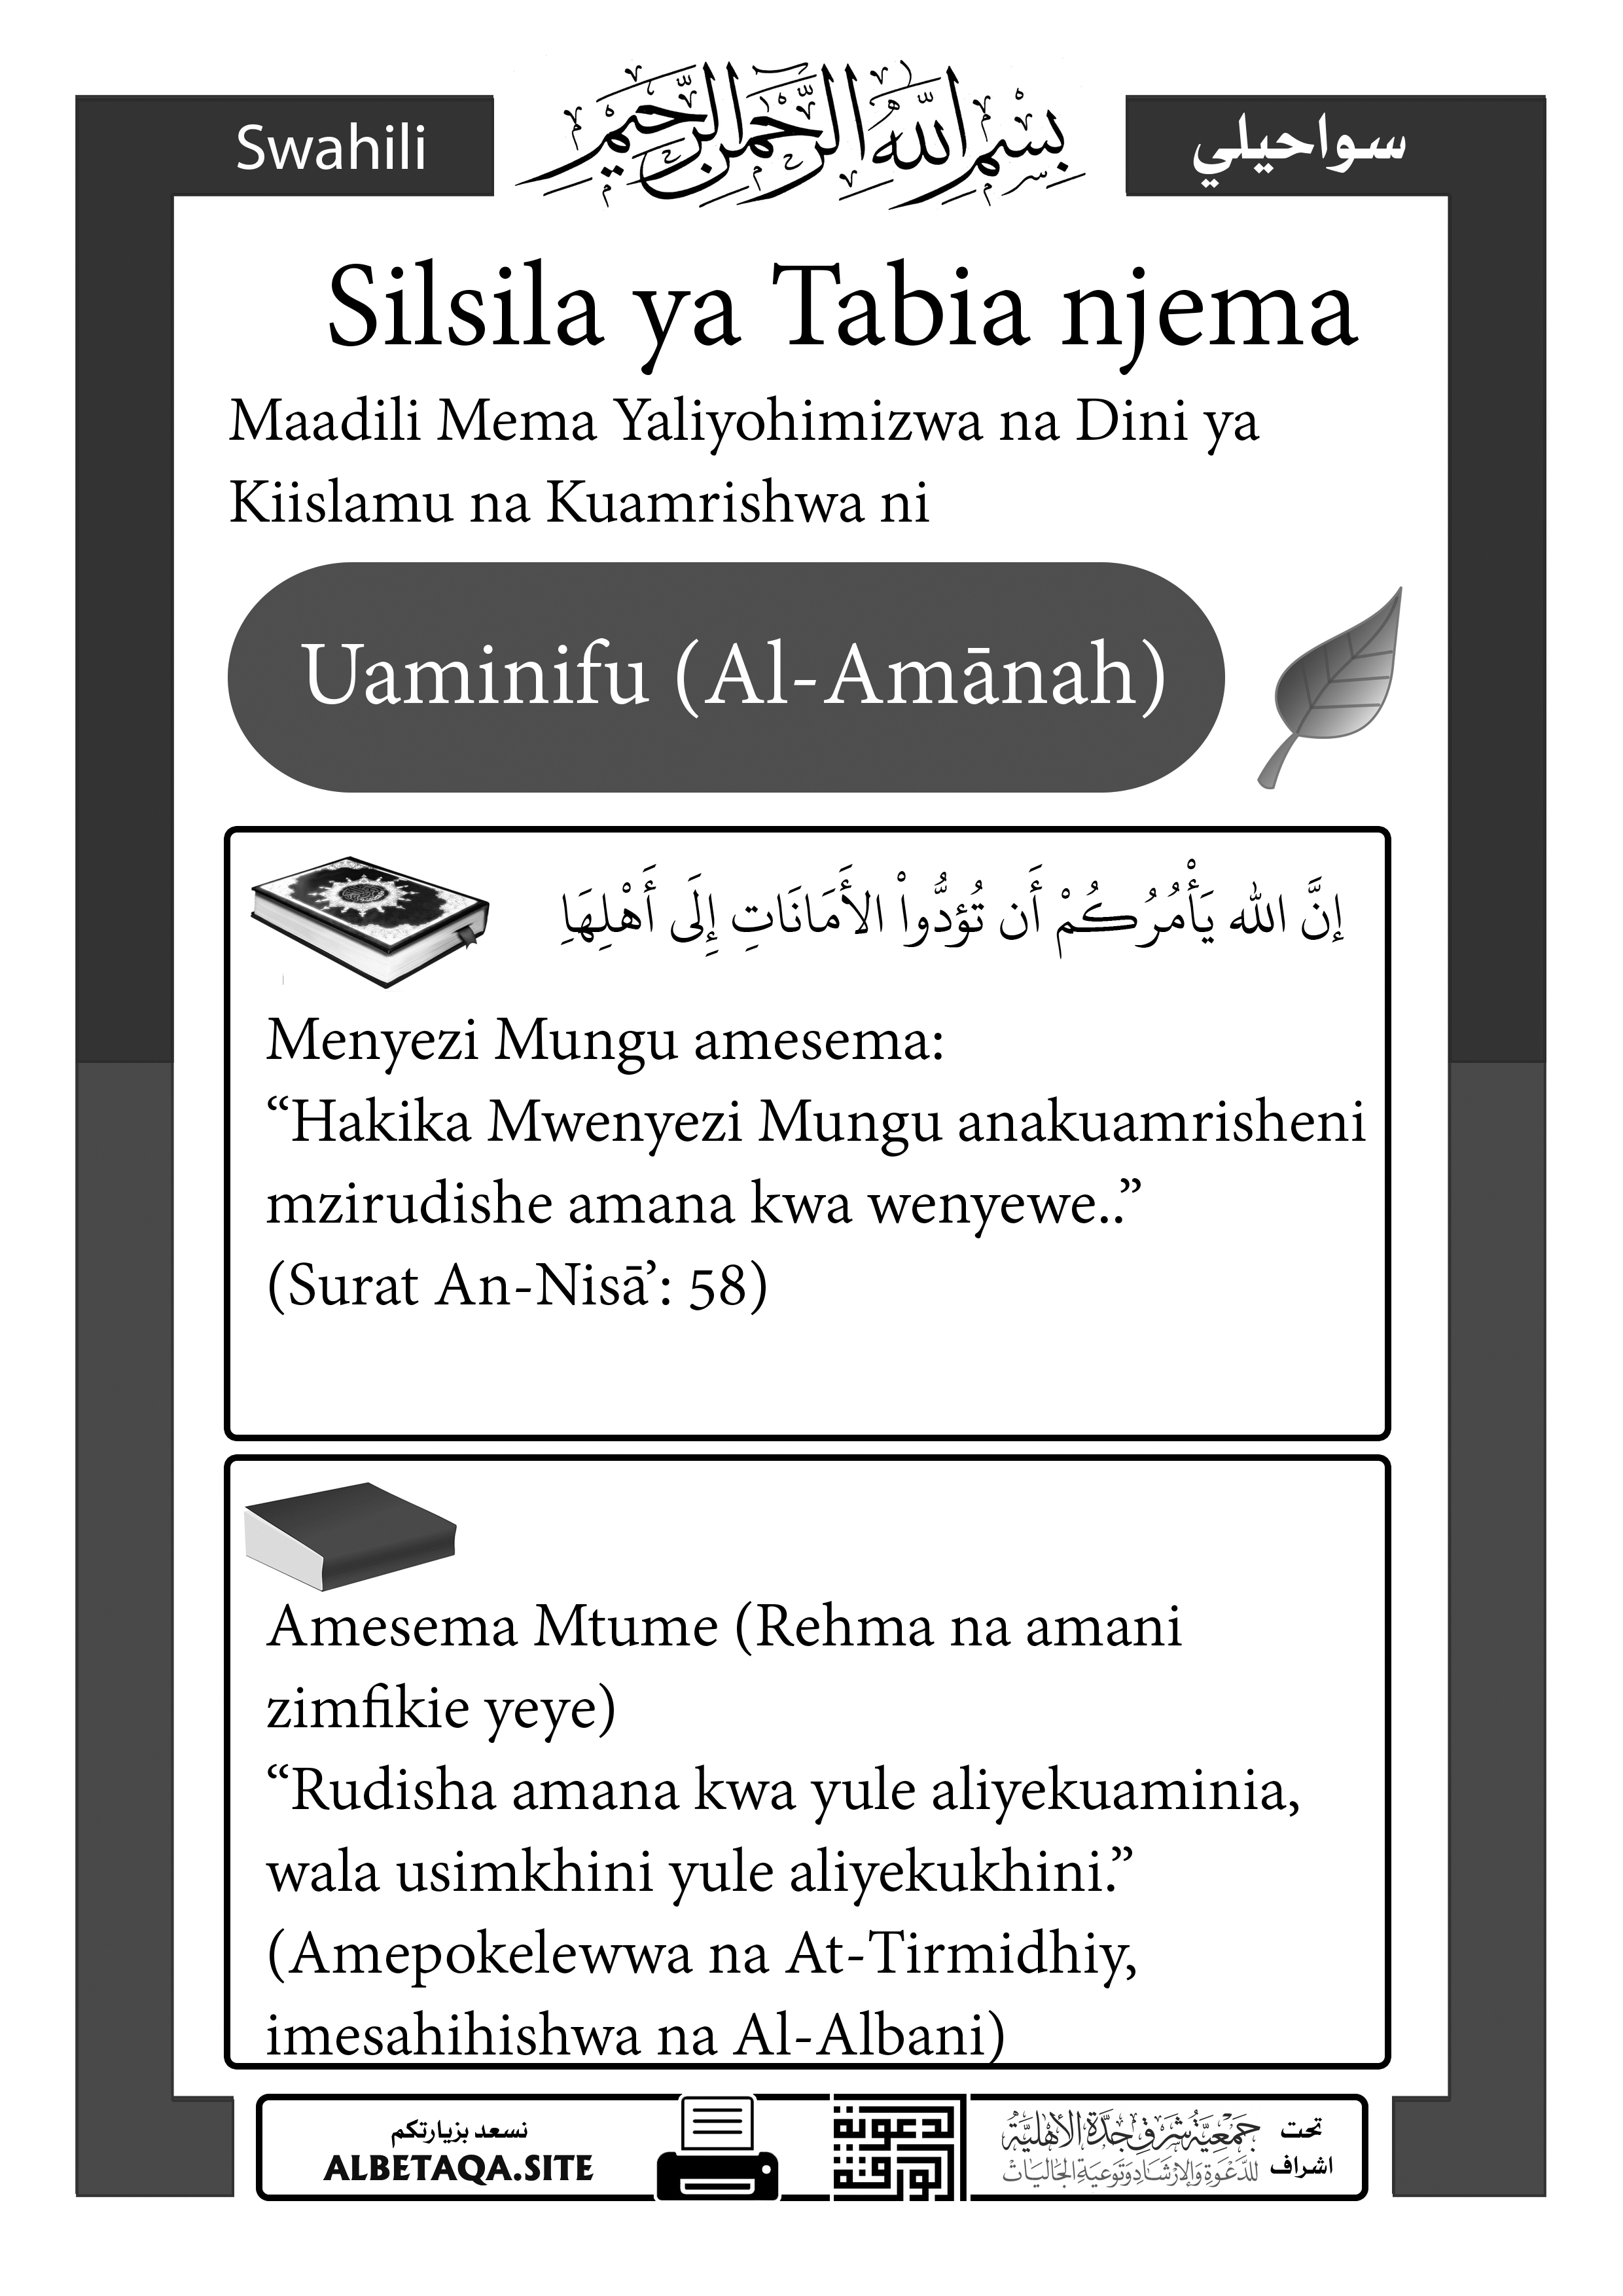 Swahili
بسم الله الرحمن الرحيم
سواحيلي
Silsila ya Tabia njema
Maadili Mema Yaliyohimizwa na Dini ya
Kiislamu na Kuamrishwa ni
Uaminifu (Al-Amānah)
إنَّ الله يَأْمُرُكُمْ أَن تُؤدُّواْ الأَمَانَاتِ إِلَى أَهْلِهَاِ
Menyezi Mungu amesema:
“Hakika Mwenyezi Mungu anakuamrisheni
mzirudishe amana kwa wenyewe..”
(Surat An-Nisā’: 58)
Amesema Mtume (Rehma na amani
zimfikie yeye)
“Rudisha amana kwa yule aliyekuaminia,
wala usimkhini yule aliyekukhini.”
(Amepokelewwa na At-Tirmidhiy,
imesahihishwa na Al-Albani)
نسعد بزيارتكم
ALBETAQA.SITE
الدعوية
الورقة
تحت
اشراف
جمعية شرق جدة الأهلية
للدعوة والإرشاد وتوعية الجاليات